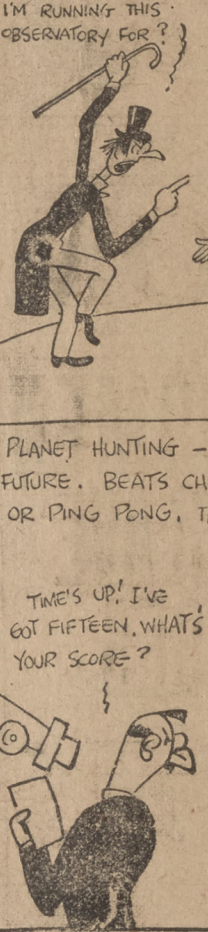 I'M RUNNING THIS
OBSERVATORY FOR?
PLANET HUNTING —
FUTURE. BEATS CH
OR PING PONG. T
TIME'S UP! I'VE
GOT FIFTEEN. WHAT'S
YOUR SCORE?